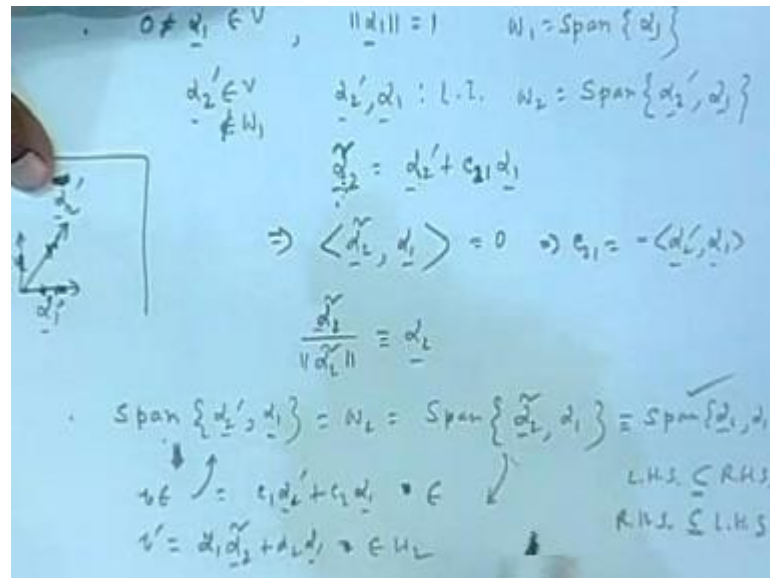 · 0 ≠ α₁ ∈ V , ||α₁|| = 1 W₁ = Span {α₁}
α₂' ∈ V α₂', α₁ : L.I. W₂ = Span {α₂', α₁}
∉ W₁
α̃₂ = α₂' + c₂₁ α₁
α₂'
⇒ <α̃₂, α₁> = 0 ⇒ c₂₁ = -<α₂', α₁>
α₁'
α̃₂ / ||α̃₂|| = α₂
· Span {α₂', α₁} = W₂ = Span {α̃₂, α₁} = Span {α₂, α
v ∈ = c₁ α₂' + c₂ α₁ ∈ L.H.S. ⊆ R.H.S
v' = d₁ α̃₂ + d₂ α₁ ∈ W₂ R.H.S. ⊆ L.H.S